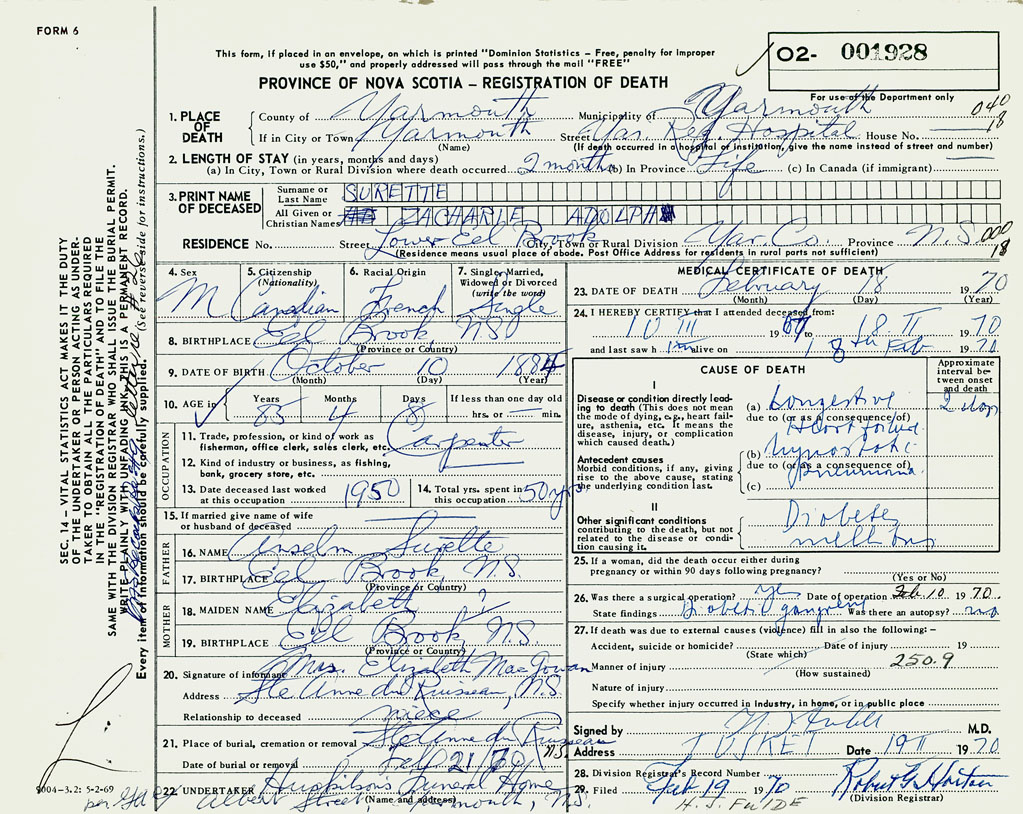 FORM 6
This form, if placed in an envelope, on which is printed "Dominion Statistics – Free, penalty for improper
use $50," and properly addressed will pass through the mail "FREE"
O2- 001928
PROVINCE OF NOVA SCOTIA – REGISTRATION OF DEATH
For use of the Department only
1. PLACE OF DEATH
County of Yarmouth Municipality of Yarmouth 040
If in City or Town Yarmouth Street Yar. Reg. Hospital House No. 18
(Name) (If death occurred in a hospital or institution, give the name instead of street and number)
2. LENGTH OF STAY (in years, months and days)
(a) In City, Town or Rural Division where death occurred 2 months (b) In Province Life (c) In Canada (if immigrant)
3. PRINT NAME OF DECEASED
Surname or Last Name SURETTE
All Given or Christian Names ZACHARIE ADOLPH
RESIDENCE No. Street Lower Eel Brook City, Town or Rural Division Yar. Co. Province N.S. 000
18
(Residence means usual place of abode. Post Office Address for residents in rural parts not sufficient)
4. Sex M
5. Citizenship (Nationality) Canadian
6. Racial Origin French
7. Single, Married, Widowed or Divorced (write the word) Single
8. BIRTHPLACE Eel Brook, N.S.
(Province or Country)
9. DATE OF BIRTH October 10 1884
(Month) (Day) (Year)
10. AGE in Years 85 Months 4 Days 8 If less than one day old
hrs. or min.
OCCUPATION
11. Trade, profession, or kind of work as fisherman, office clerk, sales clerk, etc. Carpenter
12. Kind of industry or business, as fishing, bank, grocery store, etc.
13. Date deceased last worked at this occupation 1950
14. Total yrs. spent in this occupation 50 yrs.
15. If married give name of wife or husband of deceased
FATHER
16. NAME Anselm Surette
17. BIRTHPLACE Eel Brook, N.S.
(Province or Country)
MOTHER
18. MAIDEN NAME Elizabeth ?
19. BIRTHPLACE Eel Brook, N.S.
(Province or Country)
20. Signature of informant Mrs. Elizabeth MacGowan
Address Ste Anne du Ruisseau, N.S.
Relationship to deceased niece
21. Place of burial, cremation or removal Ste Anne du Ruisseau N.S.
Date of burial or removal Feb 21, 70
22. UNDERTAKER Huskilson's Funeral Home
(Name and address)
Albert Street, Yarmouth, N.S.
MEDICAL CERTIFICATE OF DEATH
23. DATE OF DEATH February 18 1970
(Month) (Day) (Year)
24. I HEREBY CERTIFY that I attended deceased from:
10 III 1967 to 18 II 1970
and last saw him alive on 18th Feb 1970
CAUSE OF DEATH
Approximate interval between onset and death
I
Disease or condition directly leading to death (This does not mean the mode of dying, e.g., heart failure, asthenia, etc. It means the disease, injury, or complication which caused death.)
(a) Congestive 2 days
due to (or as a consequence of)
Heart failure
Antecedent causes
Morbid conditions, if any, giving rise to the above cause, stating the underlying condition last.
(b) Hypostatic
due to (or as a consequence of)
Pneumonia
(c)
II
Other significant conditions
contributing to the death, but not related to the disease or condition causing it.
Diabetes
mellitus
25. If a woman, did the death occur either during pregnancy or within 90 days following pregnancy?
(Yes or No)
26. Was there a surgical operation? yes Date of operation Feb. 10 1970.
State findings Diabetic gangrene Was there an autopsy? no
27. If death was due to external causes (violence) fill in also the following: –
Accident, suicide or homicide? Date of injury 19
(State which)
250.9
Manner of injury
(How sustained)
Nature of injury
Specify whether injury occurred in industry, in home, or in public place
Signed by M.D.
Address TUSKET Date 19 II 1970
28. Division Registrar's Record Number 7
29. Filed Feb 19 1970 Robert G. Horton
(Division Registrar)
SEC. 14 – VITAL STATISTICS ACT MAKES IT THE DUTY
OF THE UNDERTAKER OR PERSON ACTING AS UNDER-
TAKER TO OBTAIN ALL THE PARTICULARS REQUIRED
IN THE "REGISTRATION OF DEATH" AND TO FILE THE
SAME WITH THE DIVISION REGISTRAR WHO SHALL ISSUE THE BURIAL PERMIT.
WRITE PLAINLY WITH UNFADING INK. THIS IS A PERMANENT RECORD.
Every item of information should be carefully supplied. (See reverse side for instructions.)
5-2-69